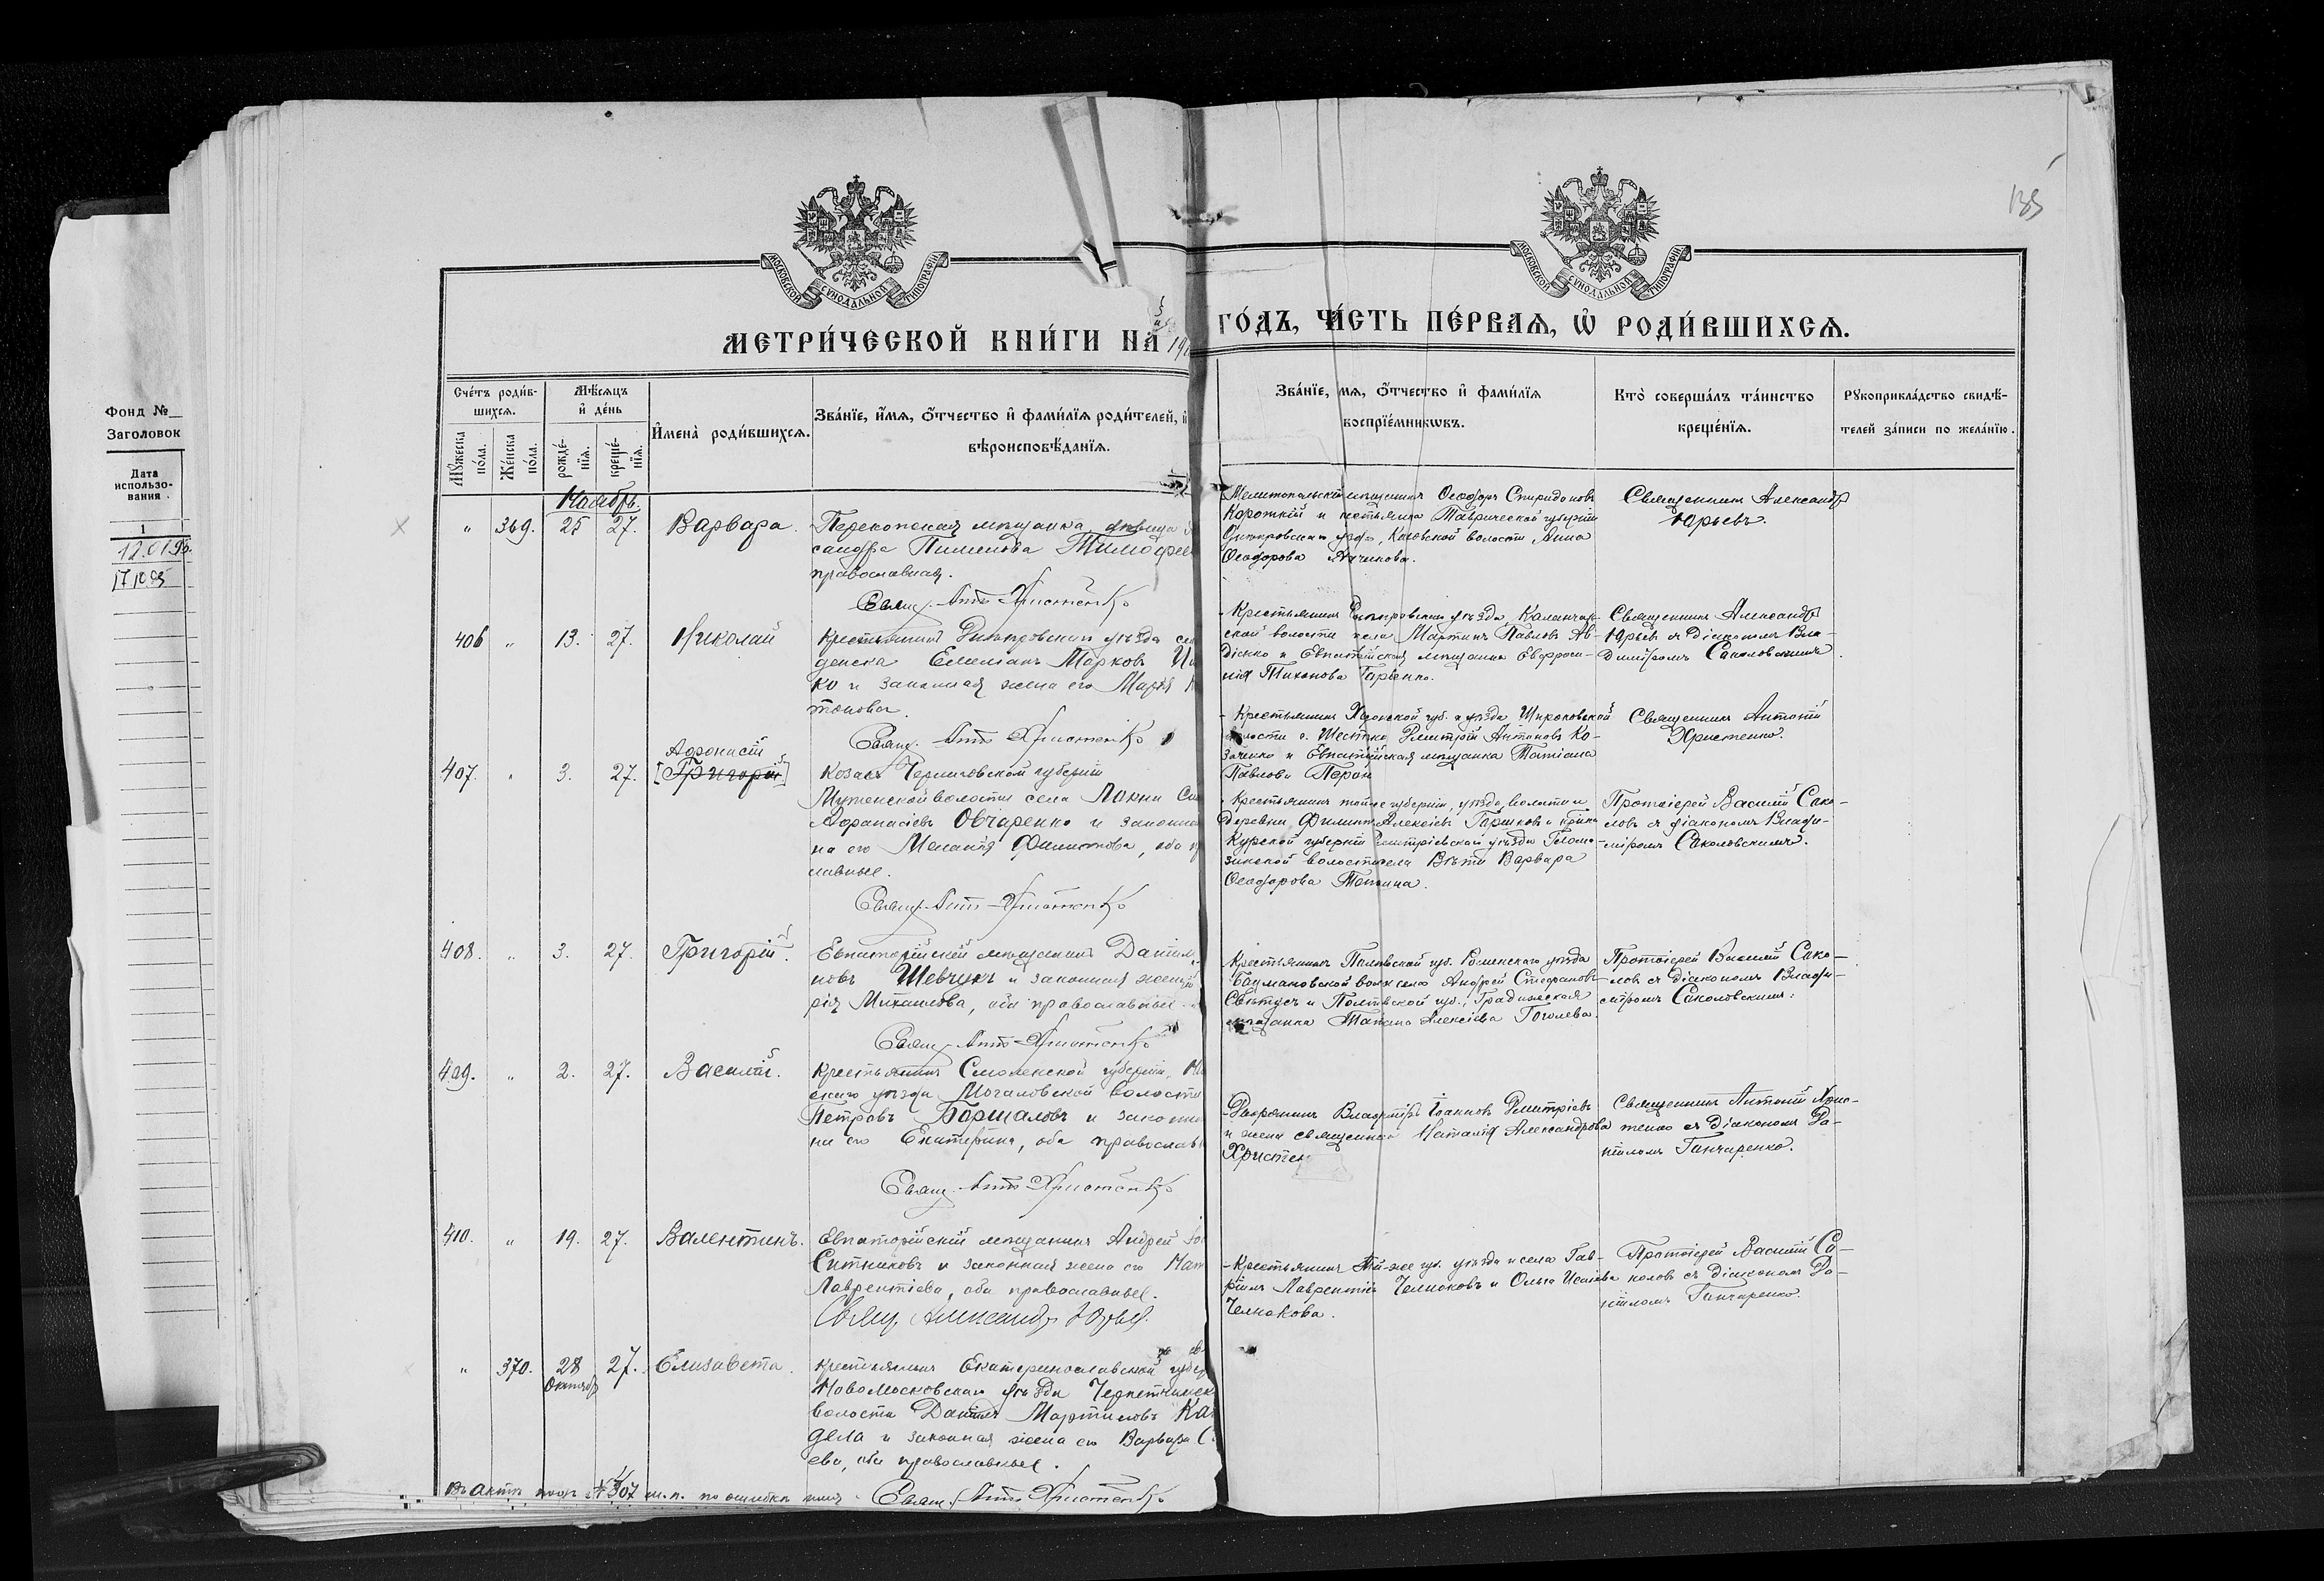 Фонд №
Заголовок
Дата
использо-
вания.
1
12.01.95.
17.10.95
135
МОСКОВСКОЙ СѴНОДАЛЬНОЙ ТИПОГРАФІИ
МОСКОВСКОЙ СѴНОДАЛЬНОЙ ТИПОГРАФІИ
МЕТРИ́ЧЕСКОЙ КНИ́ГИ НА 19
ГО́ДЪ, ЧА́СТЬ ПЕ́РВАѦ, Ѡ РОДИ́ВШИХСѦ.
Сче́тъ роди́в-
шихсѧ.
Мꙋ́жеска по́ла.
Же́нска по́ла.
Мѣ́сѧцъ
и де́нь
рожде́-
нїѧ.
креще́-
нїѧ.
Имена̀ роди́вшихсѧ.
Зва́нїе, и́мѧ, ѻ҆́тчество и҆ фами́лїѧ роди́телей, и҆
вѣроисповѣ́данїѧ.
Зва́нїе, мѧ, ѻ҆́тчество и҆ фами́лїѧ
воспрїе́мникѡвъ.
Кто̀ соверша́лъ та́инство
креще́нїѧ.
Рꙋкоприкла́дство свидѣ́-
телей за́писи по жела́нїю.
Ноябрь.
" 369. 25 27. Варвара.
Перекопская мѣщанка дѣвица
сандра Пименова Тимофее
православная.
Свящ. Ант. Христенко
Мелитопольскій мѣщанинъ Ѳеодоръ Спиридоновъ
Короткій и крестьянка Таврической губерніи
Днѣпровскаго уѣзда, волости Анна
Ѳеодорова
Священникъ Александръ
Юрьевъ.
406 " 13. 27. Николай
Крестьянинъ Днѣпровскаго уѣзда се
Емеліанъ Марковъ
ко и законная жена его Марія
тонова.
Свящ. Ант. Христенко
Крестьянинъ Днѣпровскаго уѣзда, Каланчак-
ской волости села Мартинъ Павловъ Ав-
дієнко и Евпаторійская мѣщанка Евфроси-
нія Тихонова Гарбенко.
Священникъ Александръ
Юрьевъ съ діакономъ Вла-
диміромъ Соколовскимъ.
407. " 3. 27. Аѳонасій
[Григорій]
Козакъ Черниговской губерніи
волости села Локни
Аѳанасіевъ Овчаренко и законн
на его Меланія Филиппова, оба п
славные.
Свящ. Ант. Христенко
Крестьянинъ Херсонской губ. и уѣзда Широковской
волости с. Шестко Дмитрій Антоновъ Ко-
заченко и Евпаторійская мѣщанка Татіана
Павлова
Священникъ Антоній
Христенко.
Крестьянинъ той же губерніи, уѣзда, волости и
деревни Филиппъ Алексіевъ Горшковъ и крест
Курской губерніи Дмитріевскаго уѣзда
волости села Варвара
Ѳеодорова
Протоіерей Василій Соко-
ловъ съ діакономъ Влади-
міромъ Соколовскимъ.
408. " 3. 27. Григорій.
Евпаторійскій мѣщанинъ Даніилъ
новъ Шевчукъ и законная жена
рія Михаилова, оба православные.
Свящ. Ант. Христенко
Крестьянинъ Полтавской губ. Роменскаго уѣзда
села Андрей Стефановъ
и Полтавской губ., Градижская
мѣщанка Татіана Алексіева Гоголева.
Протоіерей Василій Соко-
ловъ съ діакономъ Влади-
міромъ Соколовскимъ.
409. " 2. 27. Василій.
Крестьянинъ Смоленской губерніи,
скаго уѣзда волости
Петровъ Боршаловъ и законн
на его Екатерина, оба православн
Свящ. Ант. Христенко
Дворянинъ Владиміръ Іоанновъ Дмитріевъ
и жена священника Наталія Александрова
Христен
Священникъ Антоній Хрис-
тенко съ діакономъ Да-
ніиломъ Ганчаренко.
410. " 19. 27. Валентинъ.
Евпаторійскій мѣщанинъ Андрей
Ситниковъ и законная жена его
Лаврентіева, оба православные.
Свящ. Александръ Юрьевъ
Крестьянинъ той-же губ. уѣзда и села Гав-
ріилъ Лаврентіевъ Челноковъ и Ольга
Челнокова.
Протоіерей Василій Со-
коловъ съ діакономъ Да-
ніиломъ Ганчаренко.
" 370. 28 27. Елизавета.
Октября
Крестьянинъ Екатеринославской губер
Новомосковскаго уѣзда
волости Даніилъ Мартиновъ
дела и законная жена его Варвара С
ева, оба православные.
Въ актѣ подъ № 407 м. п. по ошибкѣ Свящ. Ант. Христенко